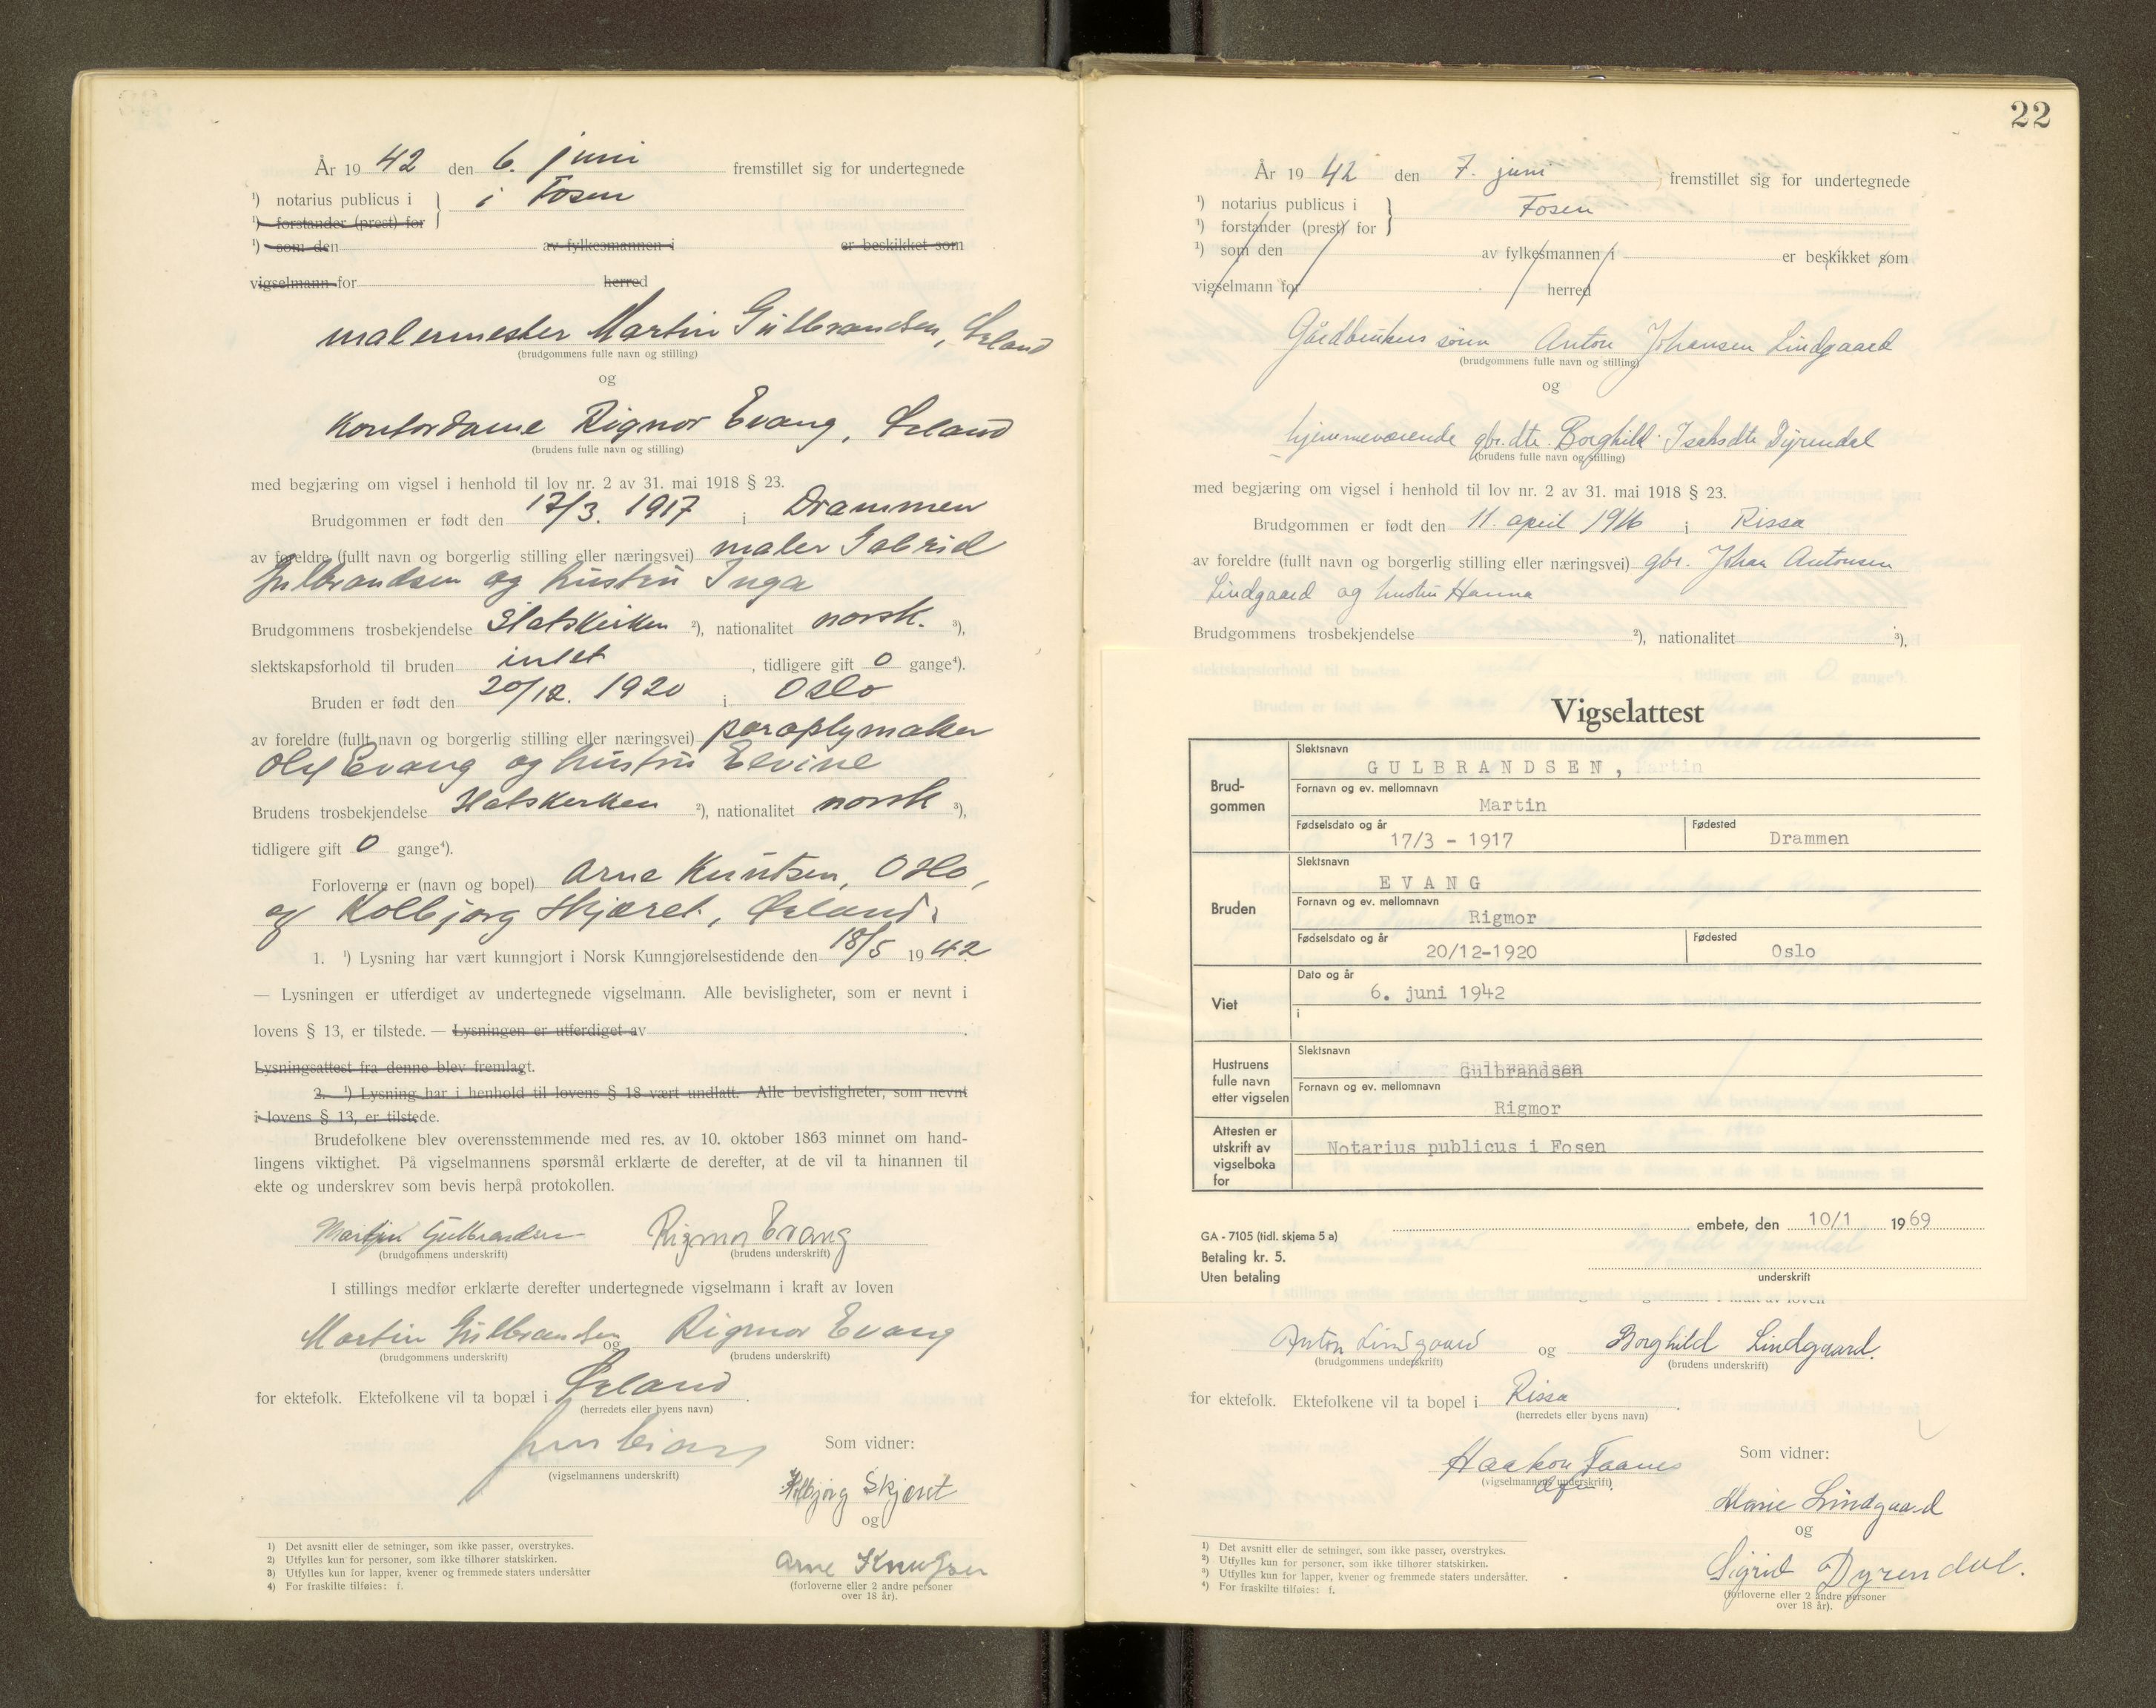 År 19 42 den 6. juni fremstillet sig for undertegnede
¹) notarius publicus i
i Fosen
¹) forstander (prest) for
¹) som den av fylkesmannen i er beskikket som
vigselmann for herred
malermester Martin Gulbrandsen, Ørland
(brudgommens fulle navn og stilling)
og
Kontordame Rigmor Evang, Ørland
(brudens fulle navn og stilling)
med begjæring om vigsel i henhold til lov nr. 2 av 31. mai 1918 § 23.
Brudgommen er født den 17/3. 1917 i Drammen
av foreldre (fullt navn og borgerlig stilling eller næringsvei) maler Gabriel
Gulbrandsen og hustru Inga
Brudgommens trosbekjendelse Statskirken ²), nationalitet norsk. ³),
slektskapsforhold til bruden intet, tidligere gift 0 gange⁴).
Bruden er født den 20/12. 1920 i Oslo
av foreldre (fullt navn og borgerlig stilling eller næringsvei) paraplymaker
Olaf Evang og hustru Elvine
Brudens trosbekjendelse Statskirken ²), nationalitet norsk ³),
tidligere gift 0 gange⁴).
Forloverne er (navn og bopel) Arne Knutsen, Oslo,
og Kolbjørg Skjæret, Ørland.
1. ¹) Lysning har vært kunngjort i Norsk Kunngjørelsestidende den 18/5 19 42
— Lysningen er utferdiget av undertegnede vigselmann. Alle bevisligheter, som er nevnt i
lovens § 13, er tilstede. — Lysningen er utferdiget av
Lysningsattest fra denne blev fremlagt.
2. ¹) Lysning har i henhold til lovens § 18 vært undlatt. Alle bevisligheter, som nevnt
i lovens § 13, er tilstede.
Brudefolkene blev overensstemmende med res. av 10. oktober 1863 minnet om hand-
lingens viktighet. På vigselmannens spørsmål erklærte de derefter, at de vil ta hinannen til
ekte og underskrev som bevis herpå protokollen.
Martin Gulbrandsen Rigmor Evang
(brudgommens underskrift) (brudens underskrift)
I stillings medfør erklærte derefter undertegnede vigselmann i kraft av loven
Martin Gulbrandsen og Rigmor Evang
(brudgommens underskrift) (brudens underskrift)
for ektefolk. Ektefolkene vil ta bopæl i Ørland.
(herredets eller byens navn)
Som vidner:
(vigselmannens underskrift)
Kolbjørg Skjæret
og
Arne Knutsen
(forloverne eller 2 andre personer
over 18 år).
1) Det avsnitt eller de setninger, som ikke passer, overstrykes.
2) Utfylles kun for personer, som ikke tilhører statskirken.
3) Utfylles kun for lapper, kvener og fremmede staters undersåtter
4) For fraskilte tilføies: f.
22
År 19 42 den 7. juni fremstillet sig for undertegnede
¹) notarius publicus i
Fosen
¹) forstander (prest) for
¹) som den av fylkesmannen i er beskikket som
vigselmann for herred
Gårdbrukers sønn Anton Johansen Lindgaard
(brudgommens fulle navn og stilling)
og
hjemmeværende gbr.dtr. Borghild Isaksdtr Dyrendal
(brudens fulle navn og stilling)
med begjæring om vigsel i henhold til lov nr. 2 av 31. mai 1918 § 23.
Brudgommen er født den 11. april 1916 i Rissa
av foreldre (fullt navn og borgerlig stilling eller næringsvei) gbr. Johan Antonsen
Lindgaard og hustru Hanna
Brudgommens trosbekjendelse ²), nationalitet ³),
Vigselattest
Brud-
gommen
Slektsnavn
GULBRANDSEN,
Fornavn og ev. mellomnavn
Martin
Fødselsdato og år Fødested
17/3 - 1917 Drammen
Bruden
Slektsnavn
EVANG
Fornavn og ev. mellomnavn
Rigmor
Fødselsdato og år Fødested
20/12-1920 Oslo
Viet
Dato og år
6. juni 1942
i
Hustruens
fulle navn
etter vigselen
Slektsnavn
Gulbrandsen
Fornavn og ev. mellomnavn
Rigmor
Attesten er
utskrift av
vigselboka
for
Notarius publicus i Fosen
embete, den 10/1 1969
GA - 7105 (tidl. skjema 5 a)
Betaling kr. 5.
Uten betaling
underskrift
Anton Lindgaard og Borghild Lindgaard.
(brudgommens underskrift) (brudens underskrift)
for ektefolk. Ektefolkene vil ta bopel i Rissa.
(herredets eller byens navn)
Haakon Faanes
Som vidner:
(vigselmannens underskrift)
Marie Lindgaard
og
Sigrid Dyrendal.
(forloverne eller 2 andre personer
over 18 år).
¹) Det avsnitt eller de setninger, som ikke passer, overstrykes.
²) Utfylles kun for personer, som ikke tilhører statskirken.
³) Utfylles kun for lapper, kvener og fremmede staters undersåtter.
⁴) For fraskilte tilføies: f.